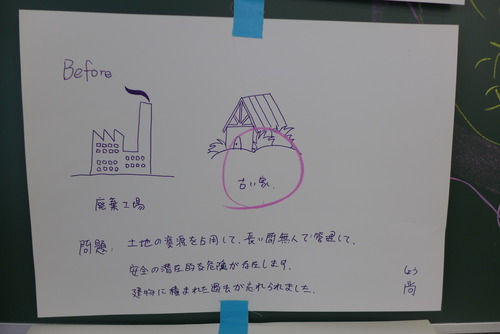 Before
廃棄工場
古い家.
問題: 土地の資源を占用して、長い間無人で管理して、
安全の潜在的な危険が存在します.
建物に積まれた過去が忘れられました.
しょう
尚